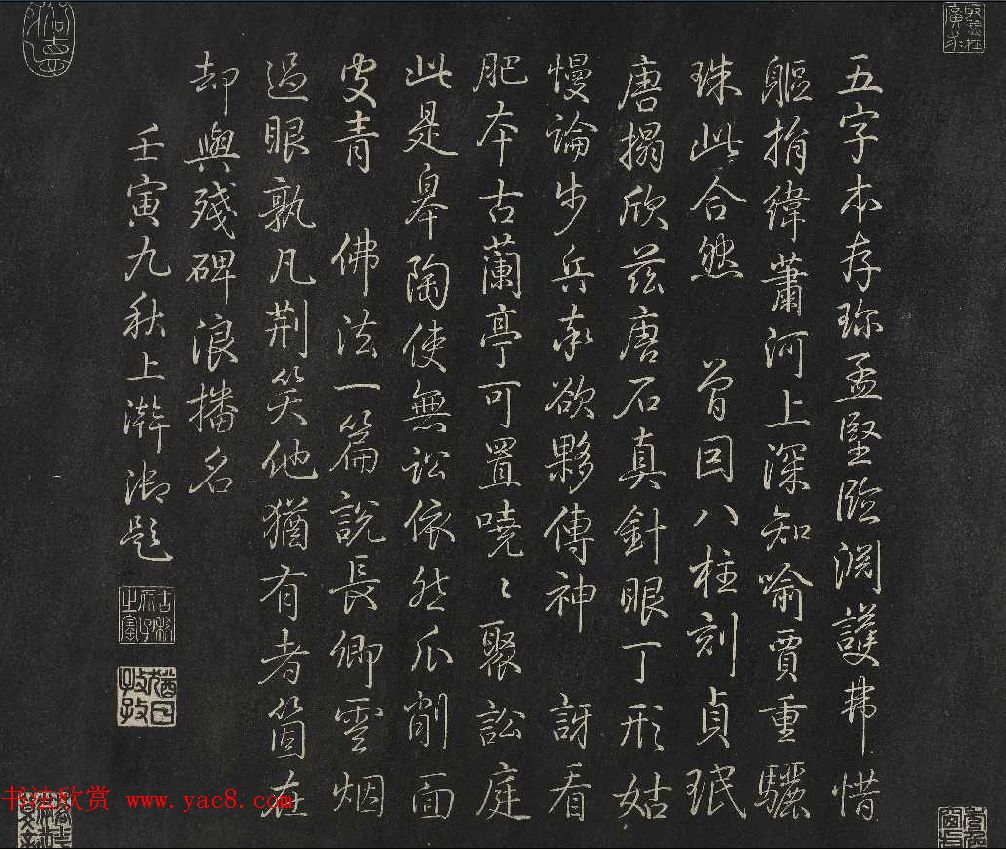 五字本存珎孟堅臨淵護弗惜
軀捐緯蕭河上深知喻賈重驪
珠此合然 曾回八柱刻貞珉
唐搨欣茲唐石真針眼丁形姑
慢論步兵奉欲夥傳神 訝看
肥本古蘭亭可置嘵〻聚訟庭
此是皐陶使無訟依然爪削面
皮青 佛法一篇說長卿雲烟
過眼孰凡荆笑他猶有者箇在
却與殘碑浪播名
壬寅九秋上澣御題
古稀天子之寶
猶日孜孜
书法欣赏 www.yac8.com